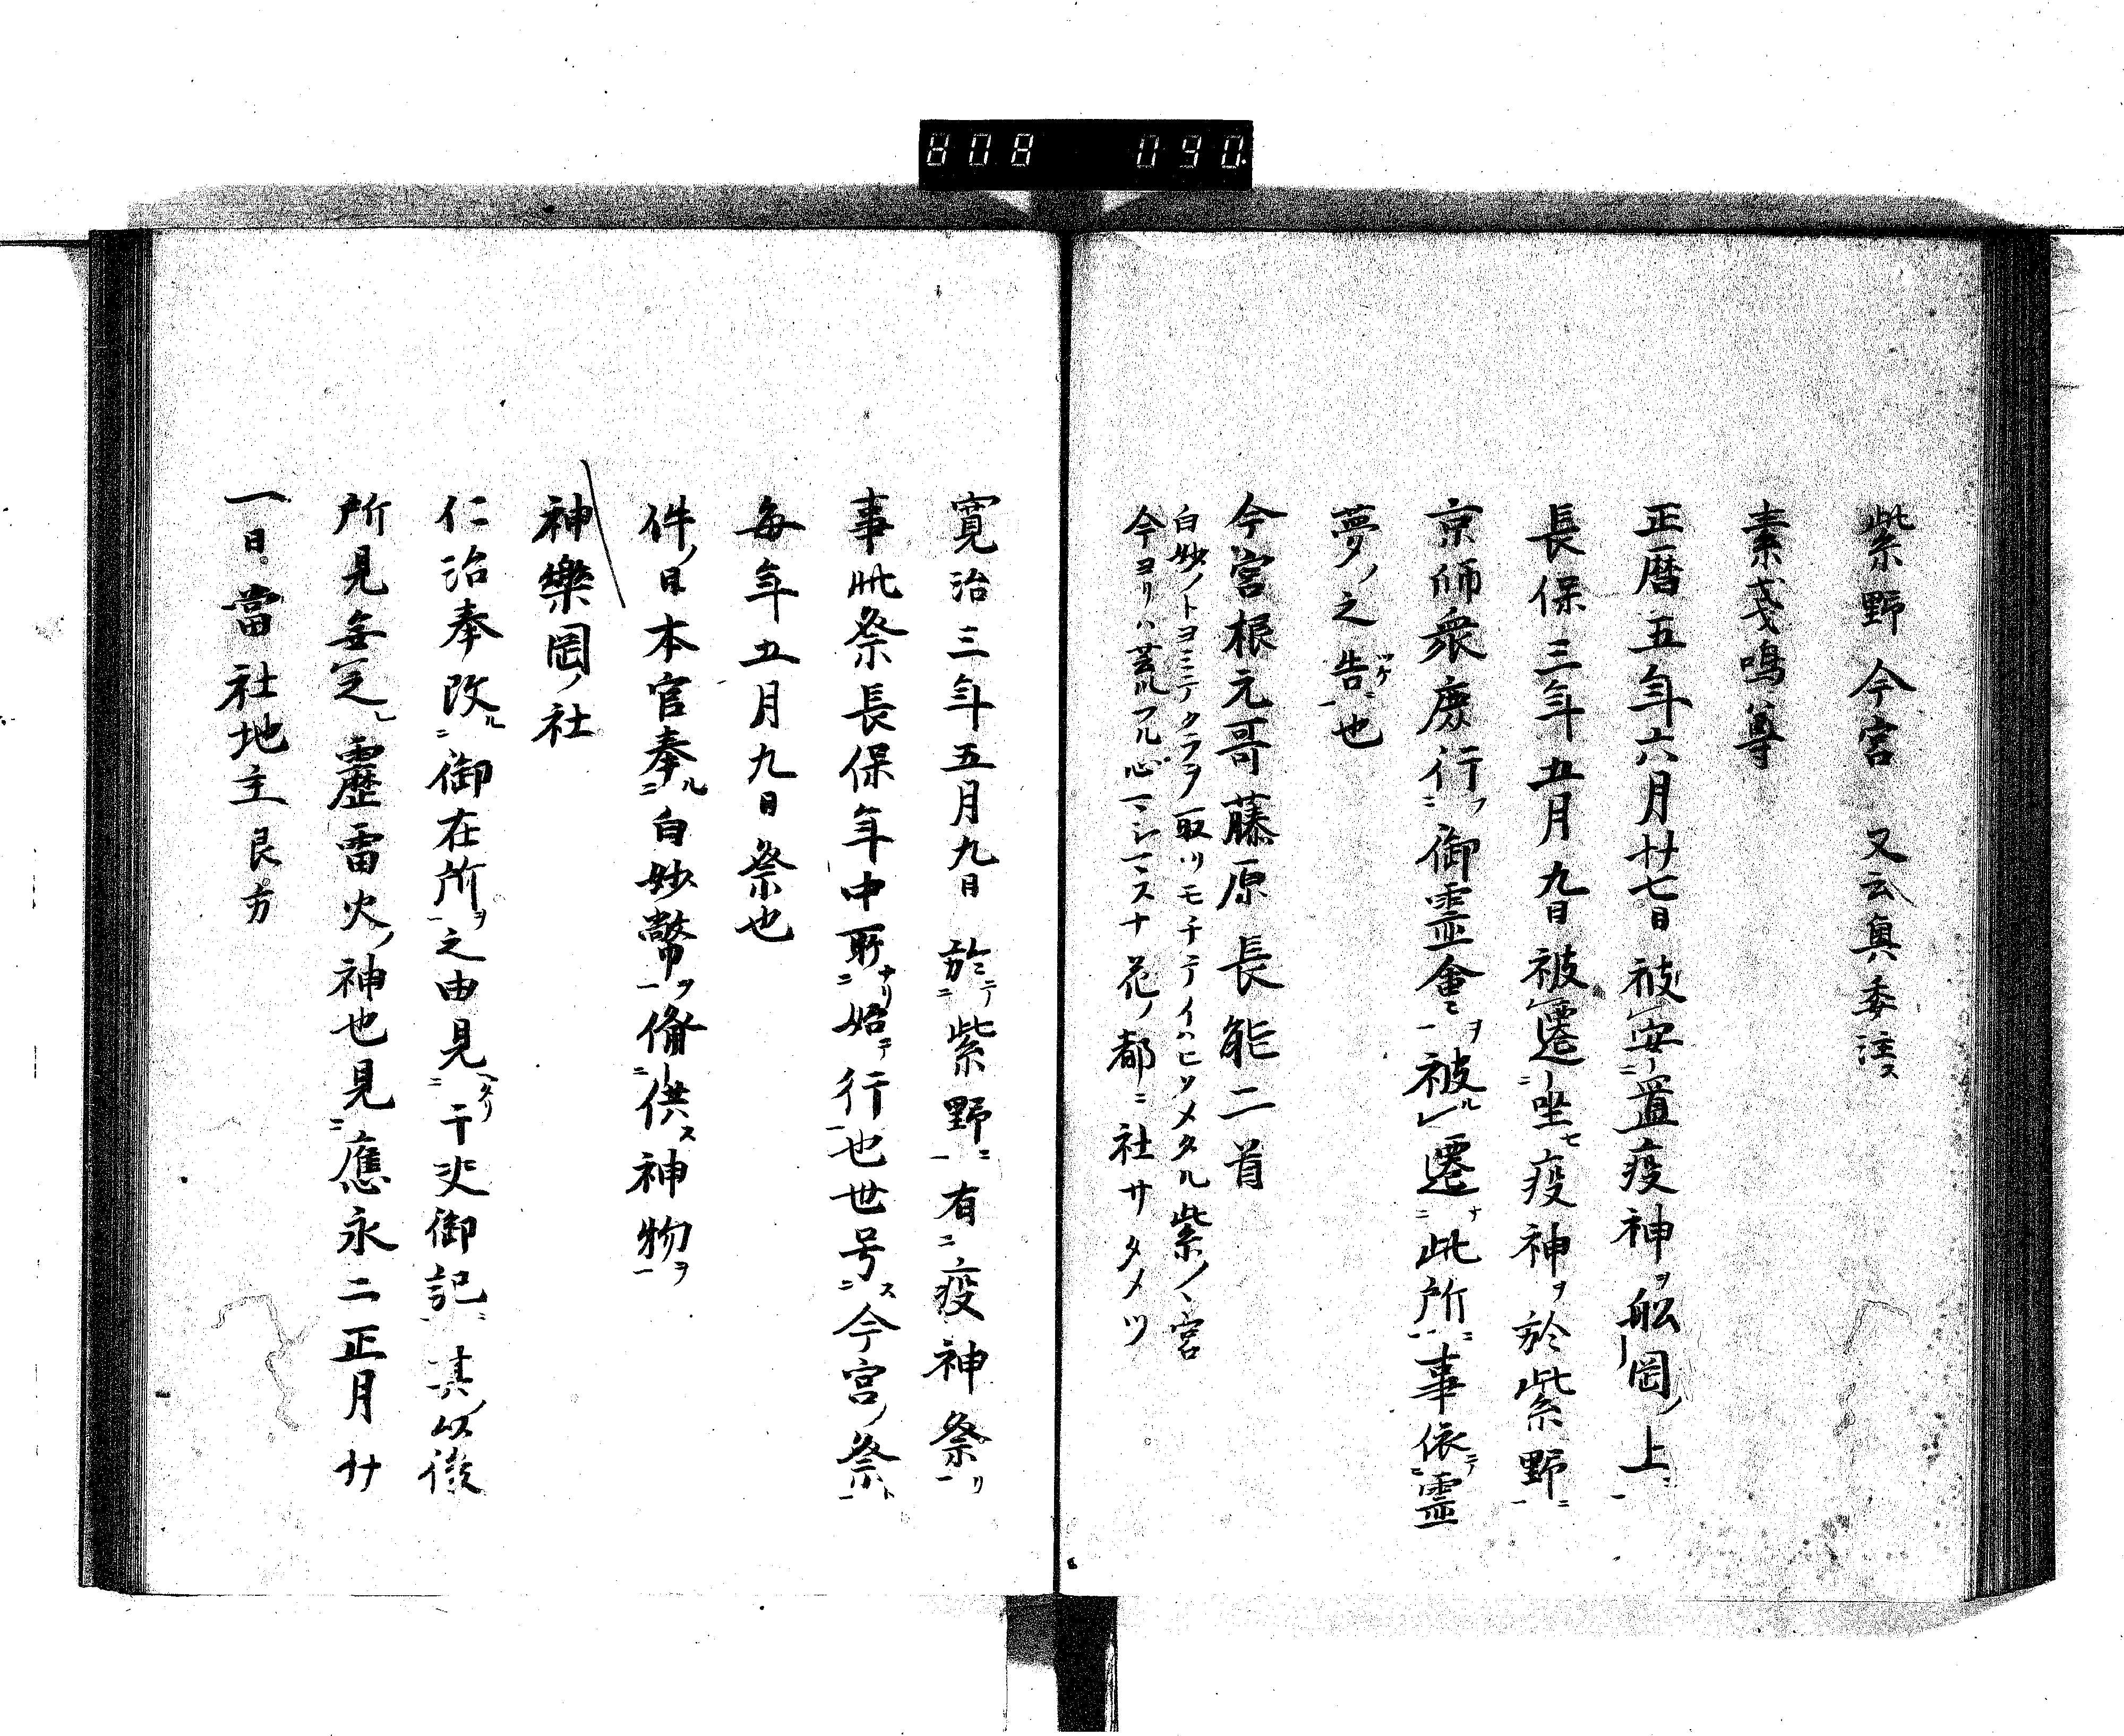 808 090
紫野今宮 又云奥委注ス
素戔嗚尊
正暦五年六月廿七日被安置疫神ヲ舩岡ノ上ニ
長保三年五月九日被遷坐セ疫神ヲ於紫野ニ
京師衆庶行フ御霊會ヲ被ル遷ナ此所ニ事依テ霊
夢ノ之告ツケニ也
今宮根元哥藤原長能二首
白妙ノトヨミテクラヲ取リモチテイハヒソメタル紫ノヽ宮
今ヨリハ荒フル心マシマスナ花ノ都ニ社サタメツ
寛治三年五月九日於テ紫野ニ有疫神祭リ
事此祭長保年中所ナリ始テ行也世号ス今宮ノ祭ト
毎年五月九日祭也
件ノ日本官奉ル白妙幣ヲ備供ス神物ヲ
神樂岡ノ社
仁治奉改ル御在所ヲ之由見ヘタリ干丈御記ニ其ノ以後
所見無之 靂雷火ノ神也見應永二正月廿
一日。當社地主艮方